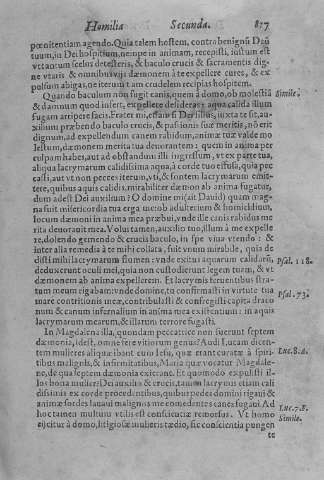 Homilia Secunda. 877
pœnitentiam agendo. Quia talem hostem, contra benignũ Deũ
tuum, in Dei hospitium, neinpe in animam, recepisti, iustum est
vt tantum scelus detesteris, & baculo crucis & sacramentis dig-
ne vtaris & omnibus vijs dæmonem à te expellere cures, & ex-
pulsum abigas, ne iterum tam crudelem recipias hospitem.
Quando baculum non fugit canis, quem à domo, ob molestiã
& damnum quod infert, expellere desideras aqua calida illum
fugam arripere facis. Frater mi, si
auxilium præbendo baculo crucis, & passionis suæ meritis, nõ erit
dignum, ad expellendum canem rabidum, animæ tuæ valde mo
lestum, dæmonem merita tua deuorantem: quem in anima per
culpam habes, aut ad obstandum illi ingressum, vt ex parte tua,
aliqua lacrymarum calidissima aqua, à corde tuo effusa, quia pec
casti, aut vt non pecces iterum, vti, & fontem lacrymarum emit-
tere, quibus aquis calidis, mirabiliter dæmon ab anima fugatur,
dum adest Dei auxilium? O domine mi (ait Dauid) quam mag-
na fuit misericordia tua erga me ob adulterium & homicidium,
locum dæmoni in anima mea præbui, vnde ille canis rabidus me
rita deuorauit mea. Voluit tamen, auxilio tuo, illum à me expelle
re, dolendo gemendo & crucis baculo, in spe viua vtendo: &
inter alia remedia à te mihi collata, fuit vnum mirabile, quia de-
disti mihi lacrymarum flumen: vnde exitus aquarum calidarũ,
deduxerunt oculi mei, quia non custodierunt legem tuam, & vt
dæmonem ab anima expellerem. Et lacrymis feruentibus stra-
tum meum rigabam: vnde domine, tu confirmasti in virtute tua
mare contritionis meæ, contribulasti & confregisti capita draco
num & canum infernalium in anima mea existentium: in aquis
lacrymarum mearum, & illarum terrore fugasti.
In Magdalena illa, quondam peccatrice non fuerunt septem
dæmonia, idest, omne fere vitiorum genus? Audi Lucam dicen-
tem mulieres aliquæ ibant cum Iesu, quæ erant curatæ à spiri-
tibus malignis, & infirmitatibus, Maria quæ vocatur Magdale-
ne, de qua septem dæmonia exierant. Et quomodo expulisti il-
los bona mulier? Dei auxilio & crucis, tamen lacrymis etiam cali
dissimis ex corde procedentibus, quibus pedes domini rigaui &
animæ sordes lauaui malignos me comedentes canes fugaui. Ad
hoc tamen multum vtilis est conscientiæ remorsus. Vt homo
eijcitur à domo, litigiosæ mulieris tædio, sic conscientia pungen
te
Simile.
Psal. 118.
Psal. 73.
Luc. 8. a.
Luc. 7. E.
Simile.